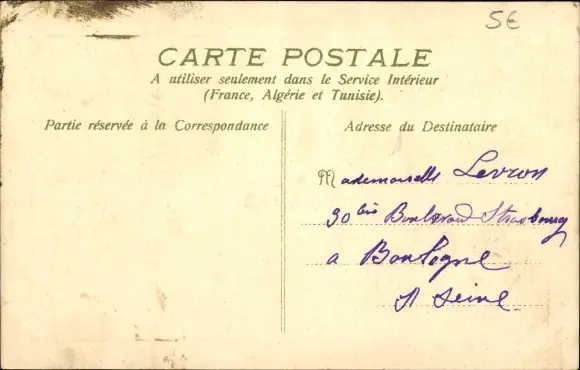 5€
CARTE POSTALE
A utiliser seulement dans le Service Intérieur
(France, Algérie et Tunisie).
Partie réservée à la Correspondance
Adresse du Destinataire
Mademoiselle Levron
30 bis Boulevard Strasbourg
a Boulogne
s/ Seine